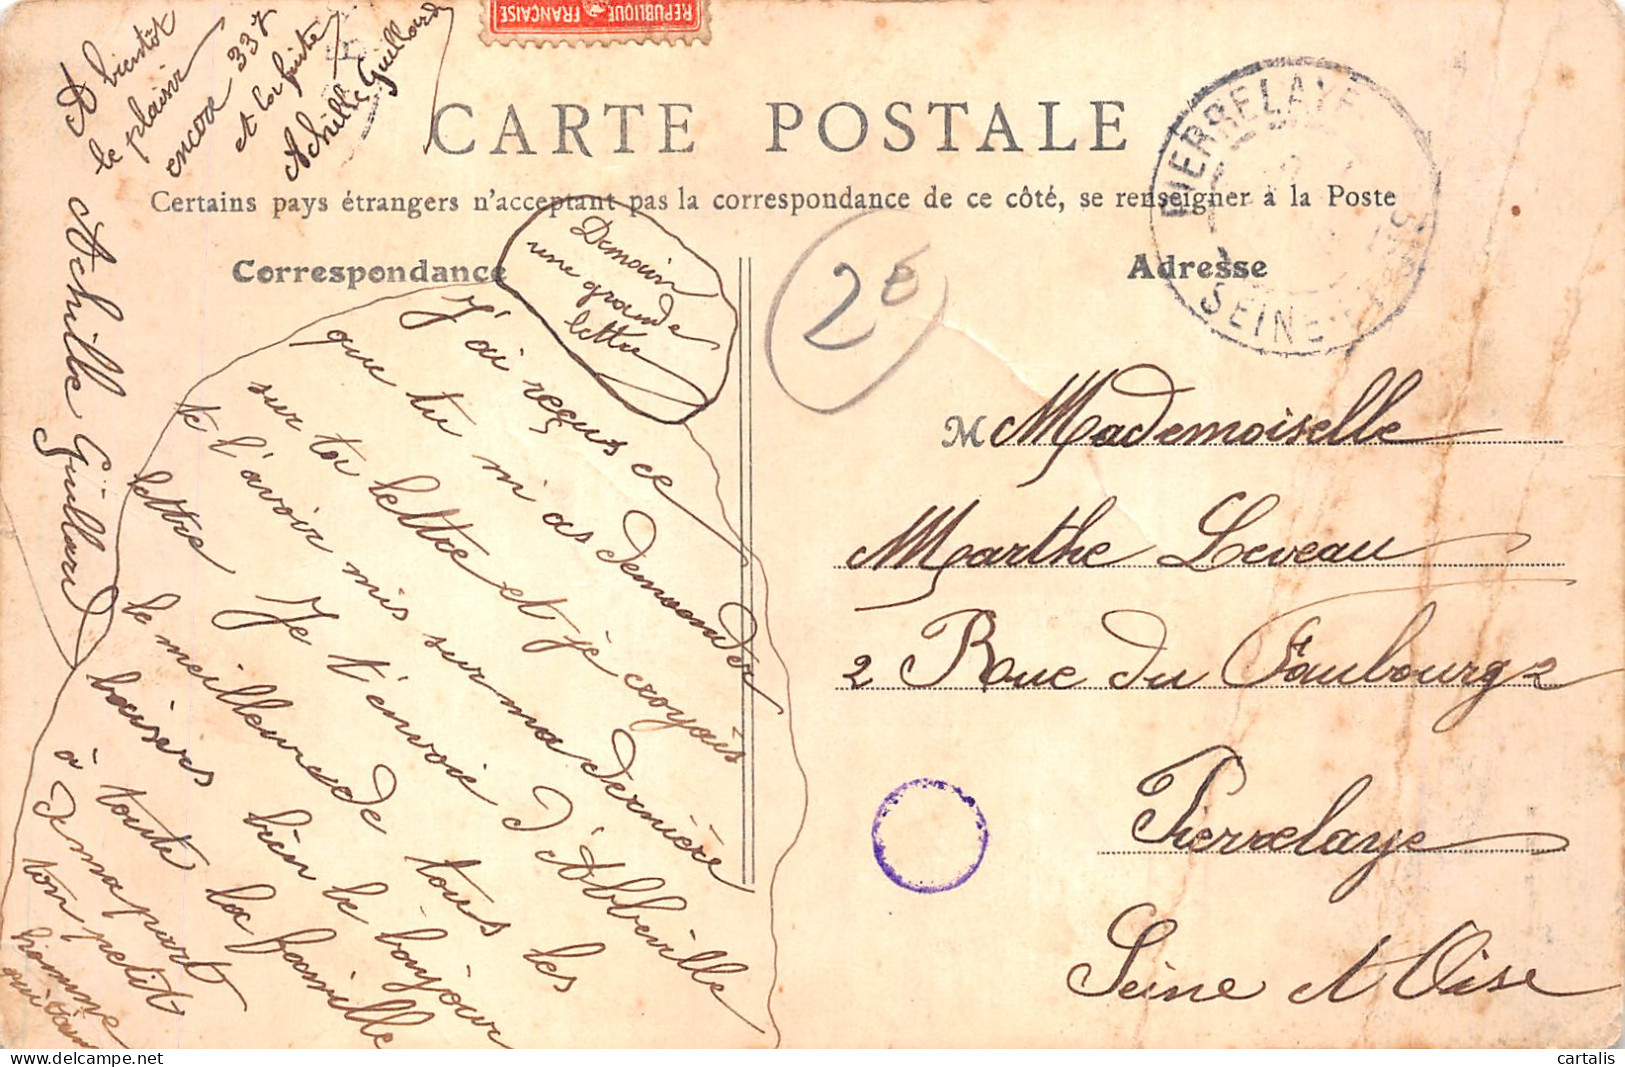 REPUBLIQUE FRANÇAISE
A bientôt
le plaisir
encore 337
et la suite
Achille Guillard
CARTE POSTALE
Certains pays étrangers n'acceptant pas la correspondance de ce côté, se renseigner à la Poste
Correspondance
Adresse
PIERRELAYE
SEINE-ET-OISE
2€
Demain
une grande
lettre
J'ai reçus ce
que tu m'as demander
sur ta lettre et je croyais
te l'avoir mis sur ma dernière
lettre Je t'envoie d'Abbeville
le meilleur de tous les
baisers bien le bonjour
à toute la famille
de ma part
ton petit
homme
Achille Guillard
M Mademoiselle
Marthe Leveau
2 Rue du Faubourg 2
Pierrelaye
Seine et Oise
cartalis